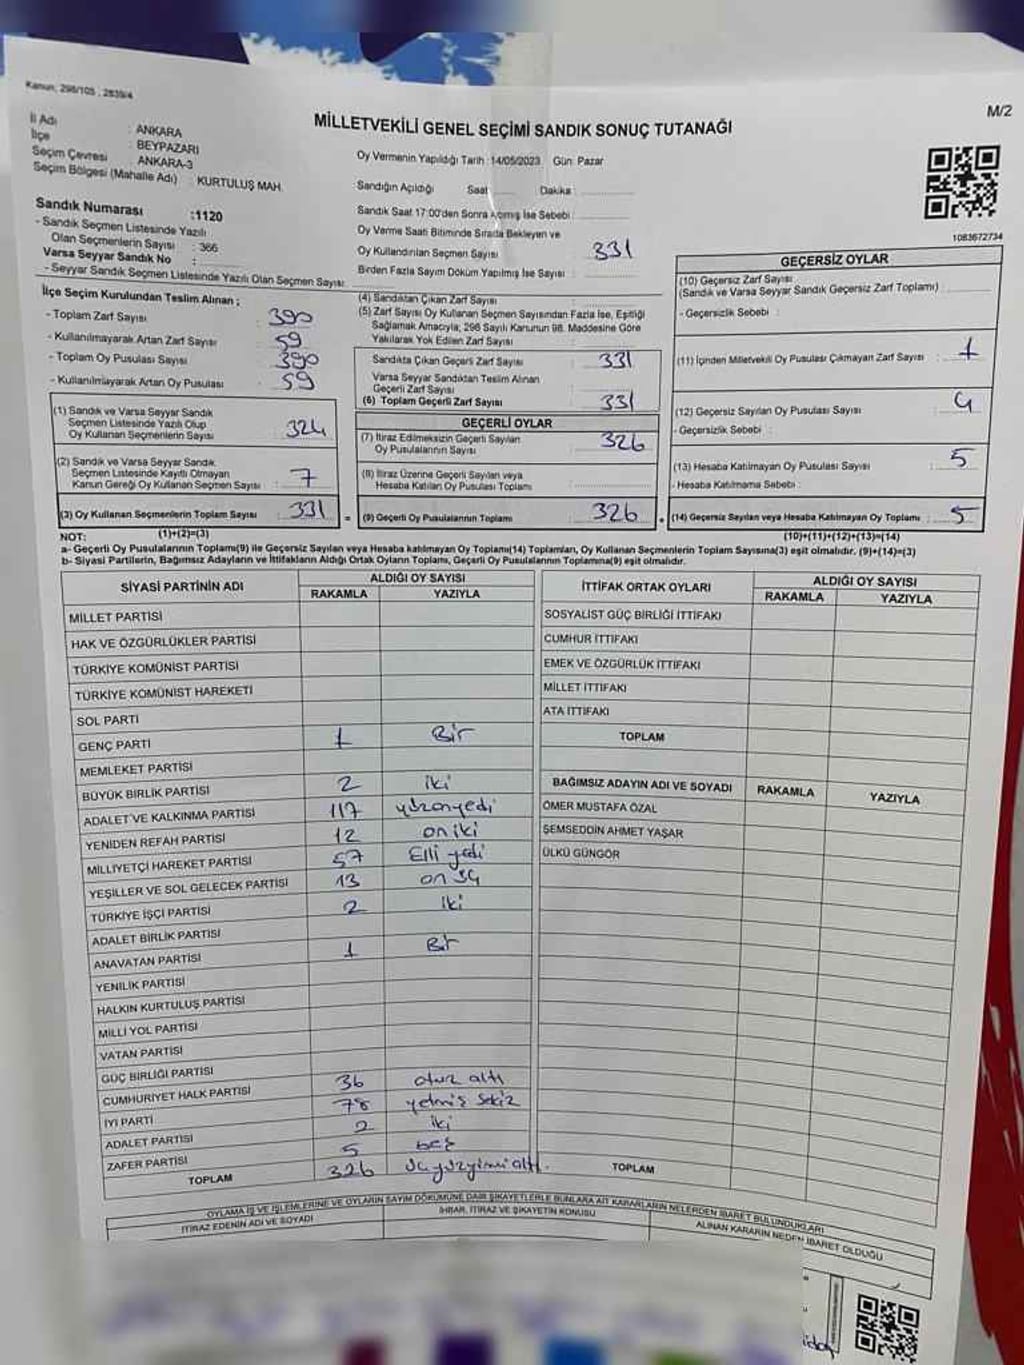 Kanun; 298/105 , 2839/4
M/2
MİLLETVEKİLİ GENEL SEÇİMİ SANDIK SONUÇ TUTANAĞI
İl Adı : ANKARA
İlçe : BEYPAZARI
Seçim Çevresi : ANKARA-3
Seçim Bölgesi (Mahalle Adı) : KURTULUŞ MAH.
Sandık Numarası :1120
- Sandık Seçmen Listesinde Yazılı
Olan Seçmenlerin Sayısı : 366
Varsa Seyyar Sandık No :
- Seyyar Sandık Seçmen Listesinde Yazılı Olan Seçmen Sayısı:
Oy Vermenin Yapıldığı Tarih : 14/05/2023 Gün: Pazar
Sandığın Açıldığı Saat Dakika :
Sandık Saat 17:00'den Sonra Açılmış İse Sebebi :
Oy Verme Saati Bitiminde Sırada Bekleyen ve
Oy Kullandırılan Seçmen Sayısı : 331
Birden Fazla Sayım Döküm Yapılmış İse Sayısı :
1083672734
İlçe Seçim Kurulundan Teslim Alınan ;
- Toplam Zarf Sayısı : 390
- Kullanılmayarak Artan Zarf Sayısı : 59
- Toplam Oy Pusulası Sayısı : 390
- Kullanılmayarak Artan Oy Pusulası : 59
(1) Sandık ve Varsa Seyyar Sandık
Seçmen Listesinde Yazılı Olup
Oy Kullanan Seçmenlerin Sayısı : 324
(2) Sandık ve Varsa Seyyar Sandık
Seçmen Listesinde Kayıtlı Olmayan
Kanun Gereği Oy Kullanan Seçmen Sayısı : 7
(3) Oy Kullanan Seçmenlerin Toplam Sayısı : 331
(4) Sandıktan Çıkan Zarf Sayısı :
(5) Zarf Sayısı Oy Kullanan Seçmen Sayısından Fazla İse, Eşitliği
Sağlamak Amacıyla; 298 Sayılı Kanunun 98. Maddesine Göre
Yakılarak Yok Edilen Zarf Sayısı :
Sandıkta Çıkan Geçerli Zarf Sayısı : 331
Varsa Seyyar Sandıktan Teslim Alınan
Geçerli Zarf Sayısı :
(6) Toplam Geçerli Zarf Sayısı : 331
GEÇERLİ OYLAR
(7) İtiraz Edilmeksizin Geçerli Sayılan
Oy Pusulalarının Sayısı : 326
(8) İtiraz Üzerine Geçerli Sayılan veya
Hesaba Katılan Oy Pusulası Toplamı :
= (9) Geçerli Oy Pusulalarının Toplamı : 326
GEÇERSİZ OYLAR
(10) Geçersiz Zarf Sayısı
(Sandık ve Varsa Seyyar Sandık Geçersiz Zarf Toplamı) :
- Geçersizlik Sebebi :
(11) İçinden Milletvekili Oy Pusulası Çıkmayan Zarf Sayısı : 1
(12) Geçersiz Sayılan Oy Pusulası Sayısı : 4
- Geçersizlik Sebebi :
(13) Hesaba Katılmayan Oy Pusulası Sayısı : 5
- Hesaba Katılmama Sebebi :
+ (14) Geçersiz Sayılan veya Hesaba Katılmayan Oy Toplamı : 5
NOT: (1)+(2)=(3) (10)+(11)+(12)+(13)=(14)
a- Geçerli Oy Pusulalarının Toplamı(9) ile Geçersiz Sayılan veya Hesaba katılmayan Oy Toplamı(14) Toplamları, Oy Kullanan Seçmenlerin Toplam Sayısına(3) eşit olmalıdır. (9)+(14)=(3)
b- Siyasi Partilerin, Bağımsız Adayların ve İttifakların Aldığı Ortak Oyların Toplamı, Geçerli Oy Pusulalarının Toplamına(9) eşit olmalıdır.
SİYASİ PARTİNİN ADI ALDIĞI OY SAYISI
RAKAMLA YAZIYLA
MİLLET PARTİSİ
HAK VE ÖZGÜRLÜKLER PARTİSİ
TÜRKİYE KOMÜNİST PARTİSİ
TÜRKİYE KOMÜNİST HAREKETİ
SOL PARTİ
GENÇ PARTİ 1 Bir
MEMLEKET PARTİSİ
BÜYÜK BİRLİK PARTİSİ 2 iki
ADALET VE KALKINMA PARTİSİ 117 yüzonyedi
YENİDEN REFAH PARTİSİ 12 on iki
MİLLİYETÇİ HAREKET PARTİSİ 57 Elli yedi
YEŞİLLER VE SOL GELECEK PARTİSİ 13 on üç
TÜRKİYE İŞÇİ PARTİSİ 2 iki
ADALET BİRLİK PARTİSİ
ANAVATAN PARTİSİ 1 Bir
YENİLİK PARTİSİ
HALKIN KURTULUŞ PARTİSİ
MİLLİ YOL PARTİSİ
VATAN PARTİSİ
GÜÇ BİRLİĞİ PARTİSİ
CUMHURİYET HALK PARTİSİ 36 otuz altı
İYİ PARTİ 78 yetmiş sekiz
ADALET PARTİSİ 2 iki
ZAFER PARTİSİ 5 beş
TOPLAM 326 üçyüzyirmi altı.
İTTİFAK ORTAK OYLARI ALDIĞI OY SAYISI
RAKAMLA YAZIYLA
SOSYALİST GÜÇ BİRLİĞİ İTTİFAKI
CUMHUR İTTİFAKI
EMEK VE ÖZGÜRLÜK İTTİFAKI
MİLLET İTTİFAKI
ATA İTTİFAKI
TOPLAM
BAĞIMSIZ ADAYIN ADI VE SOYADI RAKAMLA YAZIYLA
ÖMER MUSTAFA ÖZAL
ŞEMSEDDİN AHMET YAŞAR
ÜLKÜ GÜNGÖR
TOPLAM
OYLAMA İŞ VE İŞLEMLERİNE VE OYLARIN SAYIM DÖKÜMÜNE DAİR ŞİKAYETLERLE BUNLARA AİT KARARLARIN NELERDEN İBARET BULUNDUKLARI
İTİRAZ EDENİN ADI VE SOYADI İHBAR, İTİRAZ VE ŞİKAYETİN KONUSU ALINAN KARARIN NEDEN İBARET OLDUĞU